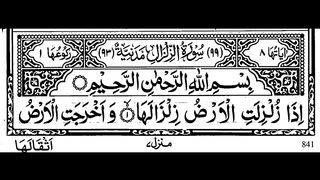 اٰیَاتُهَا ۸ (۹۹) سُوْرَةُ الزِّلْزَالِ مَدَنِیَّةٌ (۹۳) رُكُوْعُهَا ۱
بِسْمِ اللهِ الرَّحْمٰنِ الرَّحِیْمِ
اِذَا زُلْزِلَتِ الْاَرْضُ زِلْزَالَهَا ۙ۱ وَ اَخْرَجَتِ الْاَرْضُ
اَثْقَالَهَا منزل ۷ 841